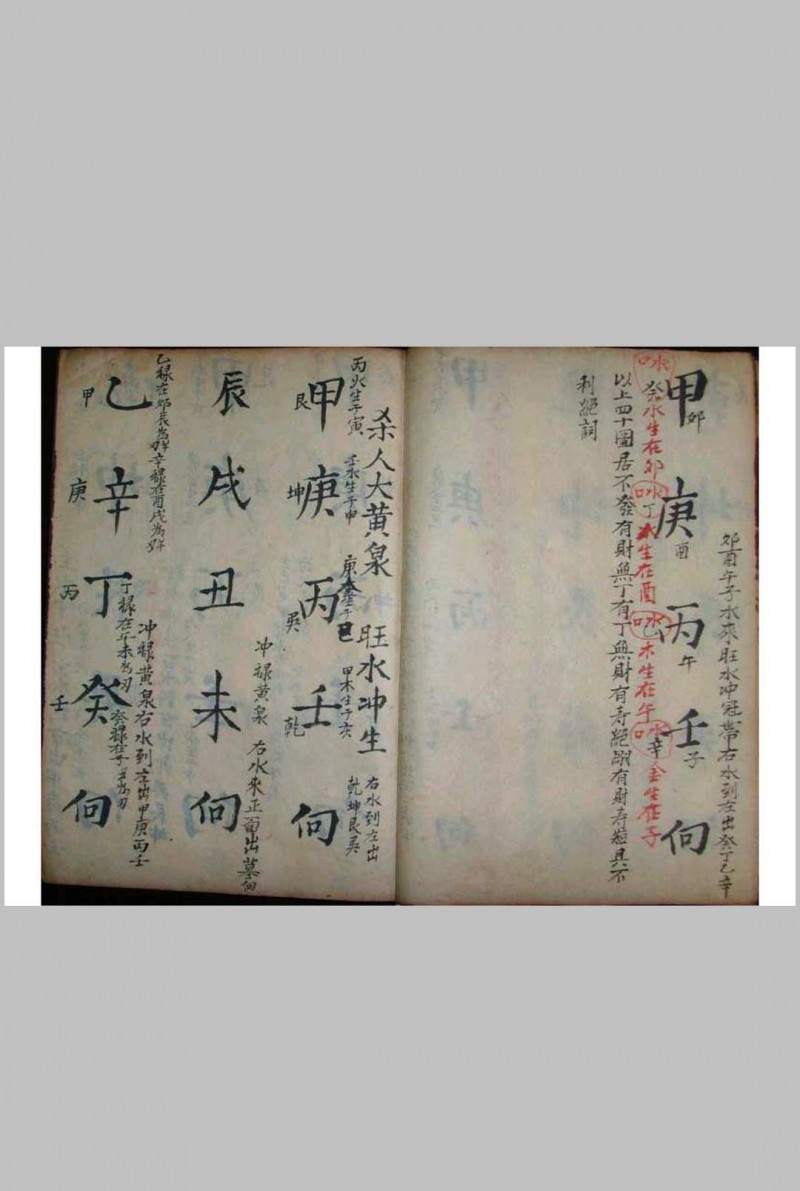 卯酉午子水來旺水冲冠帶右水到左出癸丁乙辛
甲庚丙壬向
卯酉午子
癸水生在卯 丁火生在酉 乙木生在午 辛金生在子
以上四十圖居不發有財無丁有丁無財有壽絕嗣有財壽
利絕詞
殺人大黃泉 旺水冲生
右水到左出
乾坤艮
丙火生于寅 壬水生于申
甲木生于亥
甲庚丙壬向
艮坤
乾
冲禄黃泉 右水來正面出墓向
辰戌丑未向
乙禄在卯辰為 辛禄在酉戌為
冲禄黃泉右水到左出甲庚丙壬
丁禄在午未為刃 癸禄在子丑為刃
乙辛丁癸向
甲庚丙壬